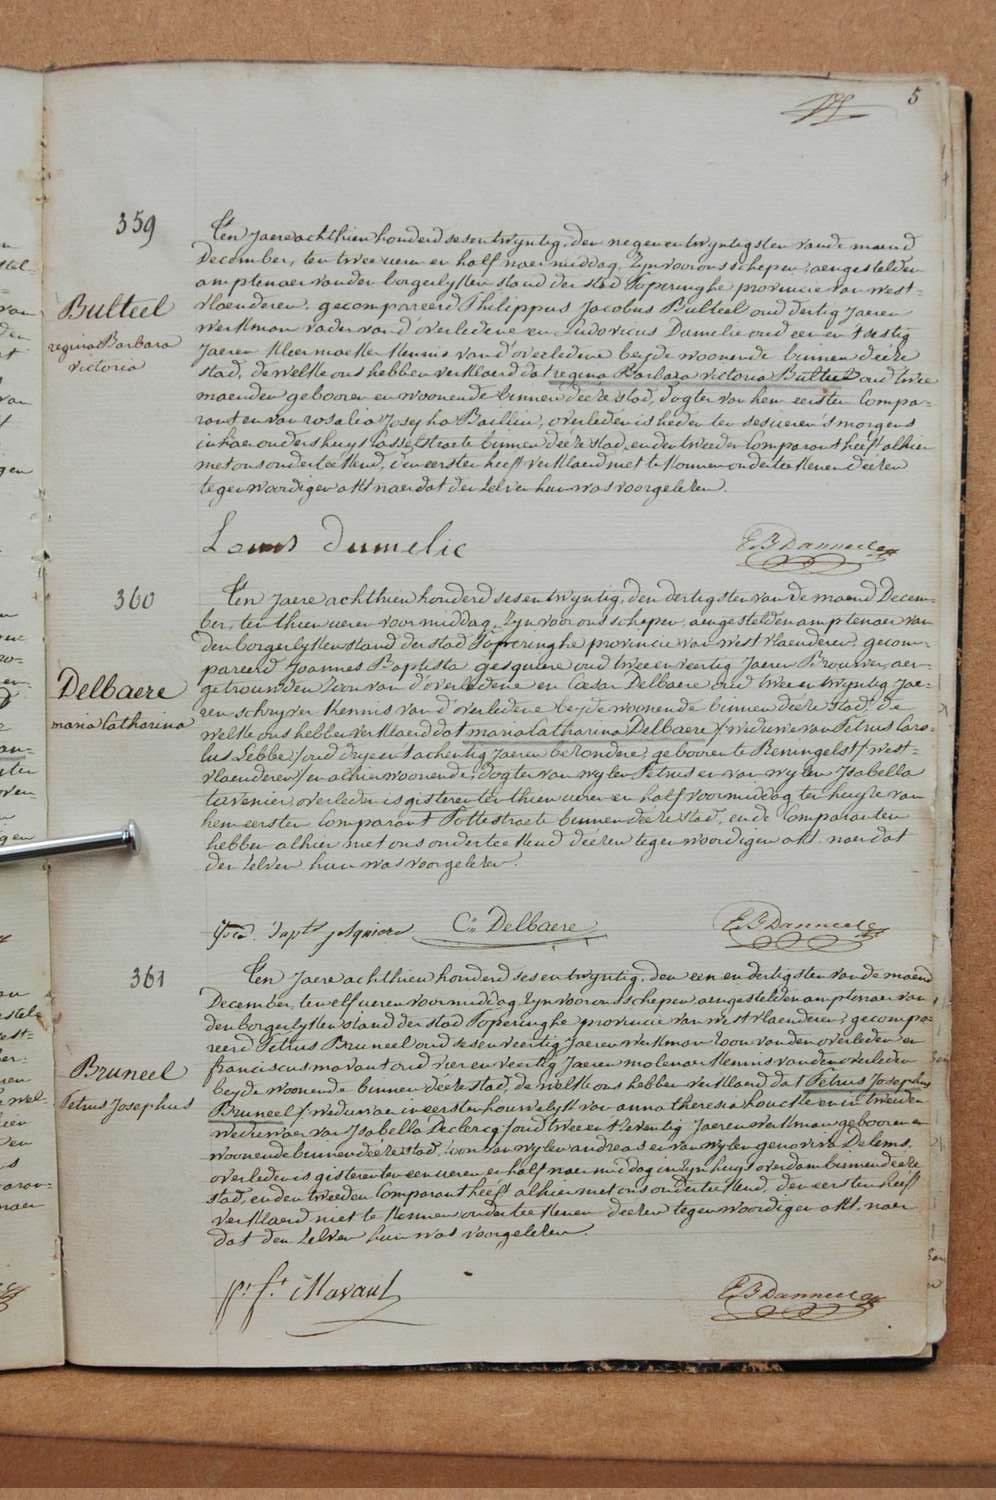 5
359
Bulteel
regina Barbara
victoria
Ten Jaere achthien honderd sesentwyntig, den negenentwyntigsten vande maend
December, ten twee ueren en half naermiddag, Zyn voor ons schepen, aengestelden
amptenaer vanden borgerlyken stand der stad Poperinghe provincie van west-
vlaenderen, gecompareerd Philippus Jacobus Bulteel oud dertig Jaeren
werkman vader van d'overledene en Ludovicus Dumelie oud een en t'sestig
Jaeren kleermaeker kennis van d'overledene beyde woonende binnen deéze
stad, de welke ons hebben verklaerd dat regina Barbara victoria Bulteel oud twee
maenden gebooren en woonende binnen deeze stad, dogter van hem eersten Compa-
rant en van rosalia Josepha Baillieu, overleden is heden ten ses ueren s'morgens
in haer ouders huys Casselstraete binnen deéze stad, en den tweeden Comparant heeft alhier
met ons onderteekend, den eersten heeft verklaerd niet te konnen onderteekenen deézen
tegenwoordigen akt naer dat den zelven hun was voorgelezen.
Louis Dumelie
360
Delbaere
maria Catharina
Ten Jaere achthien honderd sesentwyntig, den dertigsten van de maend Decem-
ber, ten thien ueren voormiddag, Zyn voor ons schepen, aengestelden amptenaer van
den borgerlyken stand der stad Poperinghe provincie van westvlaenderen, gecom-
pareerd Joannes Baptista Gesquiere oud twee en veertig Jaeren Brouwer, aen-
getrouwden Zoon van d'overledene en Cæsar Delbaere oud twee en twyntig Jae-
ren schryver kennis van d'overledene beyde woonende binnen deeze stad, de
welke ons hebben verklaerd dat maria Catharina Delbaere / weduwe van Petrus Caro-
lus Lebbe / oud dry en t'achentig Jaeren byzondere, gebooren te Reningelst / west-
vlaenderen / en alhier woonende, dogter van wylen Petrus en van wylen Isabella
tavenier, overleden is gisteren ten thien ueren en half voormiddag ten huyze van
hem eersten Comparant Pottestraete binnen deéze stad, en de Comparanten
hebben alhier met ons onderteekend deézen tegenwoordigen akt naer dat
den zelven hun was voorgelezen.
C. Delbaere
361
Bruneel
Petrus Josephus
Ten Jaere achthien honderd sesentwyntig, den een en dertigsten van de maend
December, ten elf ueren voormiddag, Zyn voor ons schepen, aengestelden amptenaer van
den borgerlyken stand der stad Poperinghe provincie van westvlaenderen, gecompa-
reerd Petrus Bruneel oud ses en veertig Jaeren werkman zoon van den overleden en
franciscus mavaut oud vier en veertig Jaeren molenaer kennis van den overleden
beyde woonende binnen deéze stad, de welke ons hebben verklaerd dat Petrus Josephus
Bruneel / weduwaer in eersten houwelyk van anna theresia houcke en in tweeden
weduwaer van Isabella Declercq / oud twee en t'zeventig Jaeren werkman gebooren en
woonende binnen deéze stad, zoon van wylen andreas en van wylen genoveva Delems,
overleden is gisteren ten een ueren en half naermiddag in zyn huys overdam binnen deéze
stad, en den tweeden Comparant heéft alhier met ons onderteekend, den eersten heéft
verklaerd niet te konnen onderteekenen deézen tegenwoordigen akt, naer
dat den zelven hun was voorgelezen.
Mavaut